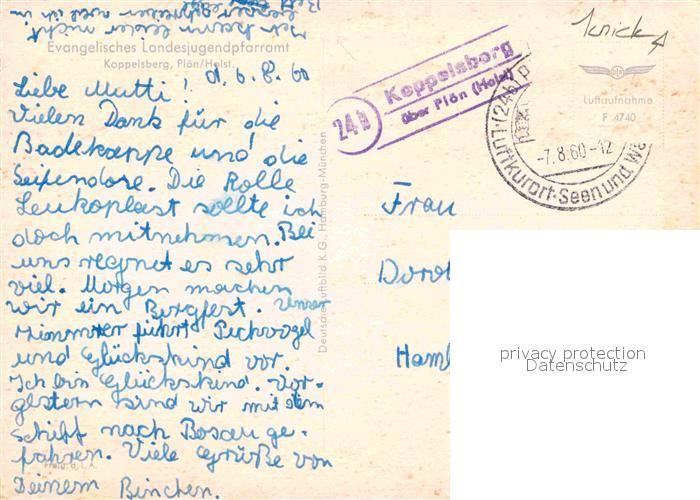 Evangelisches Landesjugendpfarramt
Koppelsberg, Plön/Holst.
d. 6. 8. 60
Liebe Mutti!
Vielen Dank für die
Badekappe und die
Seifendose. Die Rolle
Leukoplast sollte ich
doch mitnehmen. Bei
uns regnet es sehr
viel. Morgen machen
wir ein Bergfest. Unser
Zimmer führt Pechvogel
und Glückskind vor.
Ich bin Glückskind. Vor-
gestern sind wir mit dem
Schiff nach Bosau ge-
fahren. Viele Grüße von
Deinem Binchen.
Deutsche Luftbild K.G., Hamburg-München
24b
Koppelsberg
über Plön (Holst)
(24b) P
-7.8.60-12
Luftkurort·Seen und Wä
Knick
Luftaufnahme
F 4740
Frau
Dorot
Hamb
privacy protection
Datenschutz